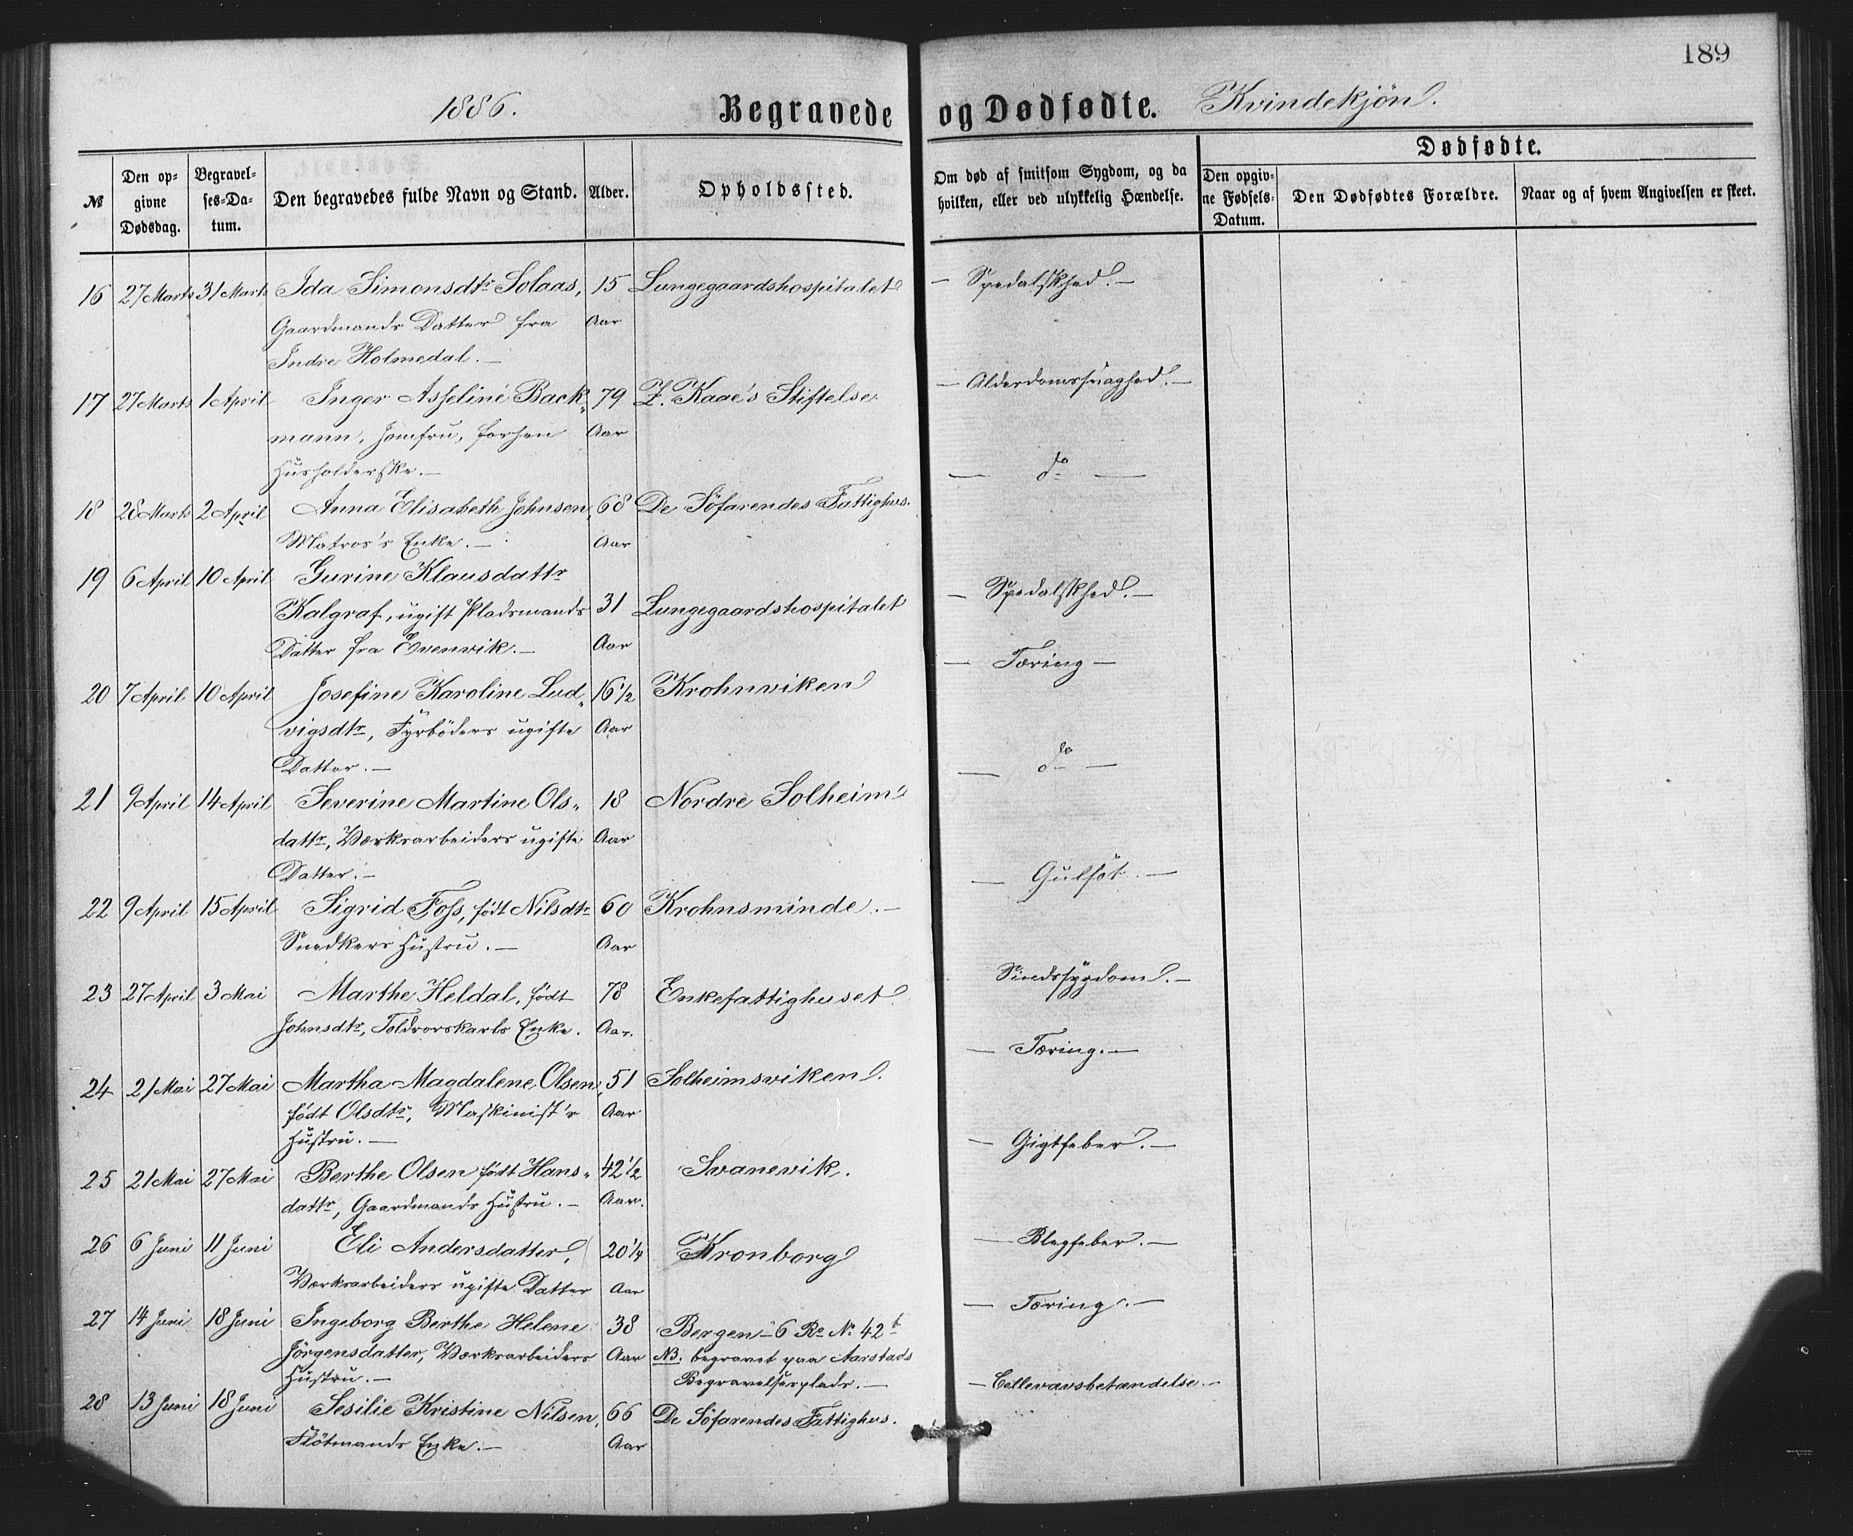 189
1886. Begravede og Dødfødte. Kvindekjøn.
№
Den opgivne Dødsdag.
Begravelses-Datum.
Den begravedes fulde Navn og Stand.
Alder.
Opholdssted.
Om død af smitsom Sygdom, og da hvilken, eller ved ulykkelig Hændelse.
Dødfødte.
Den opgivne Fødsels-Datum.
Den Dødfødtes Forældre.
Naar og af hvem Angivelsen er skeet.
16 27 Marts 31 Marts Ida Simonsdtr Solaas, 15 Lungegaardshospitalet — Spedalskhed. —
Gaardmands Datter fra Aar
Indre Holmedal. —
17 27 Marts 1 April Inger Asseline Back- 79 Z. Kaae's Stiftelse — Alderdomssvaghed. —
mann, Jomfru, forhen Aar
Husholderske. —
18 28 Marts 2 April Anna Elisabeth Johnsen, 68 De Söfarendes Fattighus. — do —
Matros's Enke. — Aar
19 6 April 10 April Gurine Klausdattr
Kalgraf, ugift Pladsmands 31 Lungegaardshospitalet — Spedalskhed. —
Datter fra Evenvik. — Aar
20 7 April 10 April Josefine Karoline Lud- 16½ Krohnviken — Tæring —
vigsdtr, Fyrböders ugifte Aar
Datter. —
21 9 April 14 April Severine Martine Ols- 18 Nordre Solheim — do —
dattr, Værksarbeiders ugifte Aar
Datter. —
22 9 April 15 April Sigrid Foss, födt Nilsdtr 60 Krohnsminde. — — Gulsöt. —
Snedkers Hustru. — Aar
23 27 April 3 Mai Marthe Heldal, födt 78 Enkefattighuset Sindssygdom. —
Johnsdtr, Toldrorskarls Enke. Aar.
24 21 Mai 27 Mai Martha Magdalene Olsen, 51 Solheimsviken. — Tæring. —
födt Olsdtr, Maskinist's Aar
Hustru. —
25 21 Mai 27 Mai Berthe Olsen födt Hans- 42½ Svanevik. — Gigtfeber. —
dattr, Gaardmands Hustru. — Aar.
26 6 Juni 11 Juni Eli Andersdatter, 20¼ Kronborg — Blegfeber. —
Værksarbeiders ugifte Datter Aar
27 14 Juni 18 Juni Ingeborg Berthe Helene 38 Bergen - 6 Ro No 42b — Tæring. —
Jörgensdatter, Værksarbeiders Aar NB. begravet paa Aarstads
Hustru. — Begravelsesplads. —
28 13 Juni 18 Juni Sesilie Kristine Nilsen, 66 De Söfarendes Fattighus. — Cellevævsbetændelse. —
Flötmands Enke. — Aar